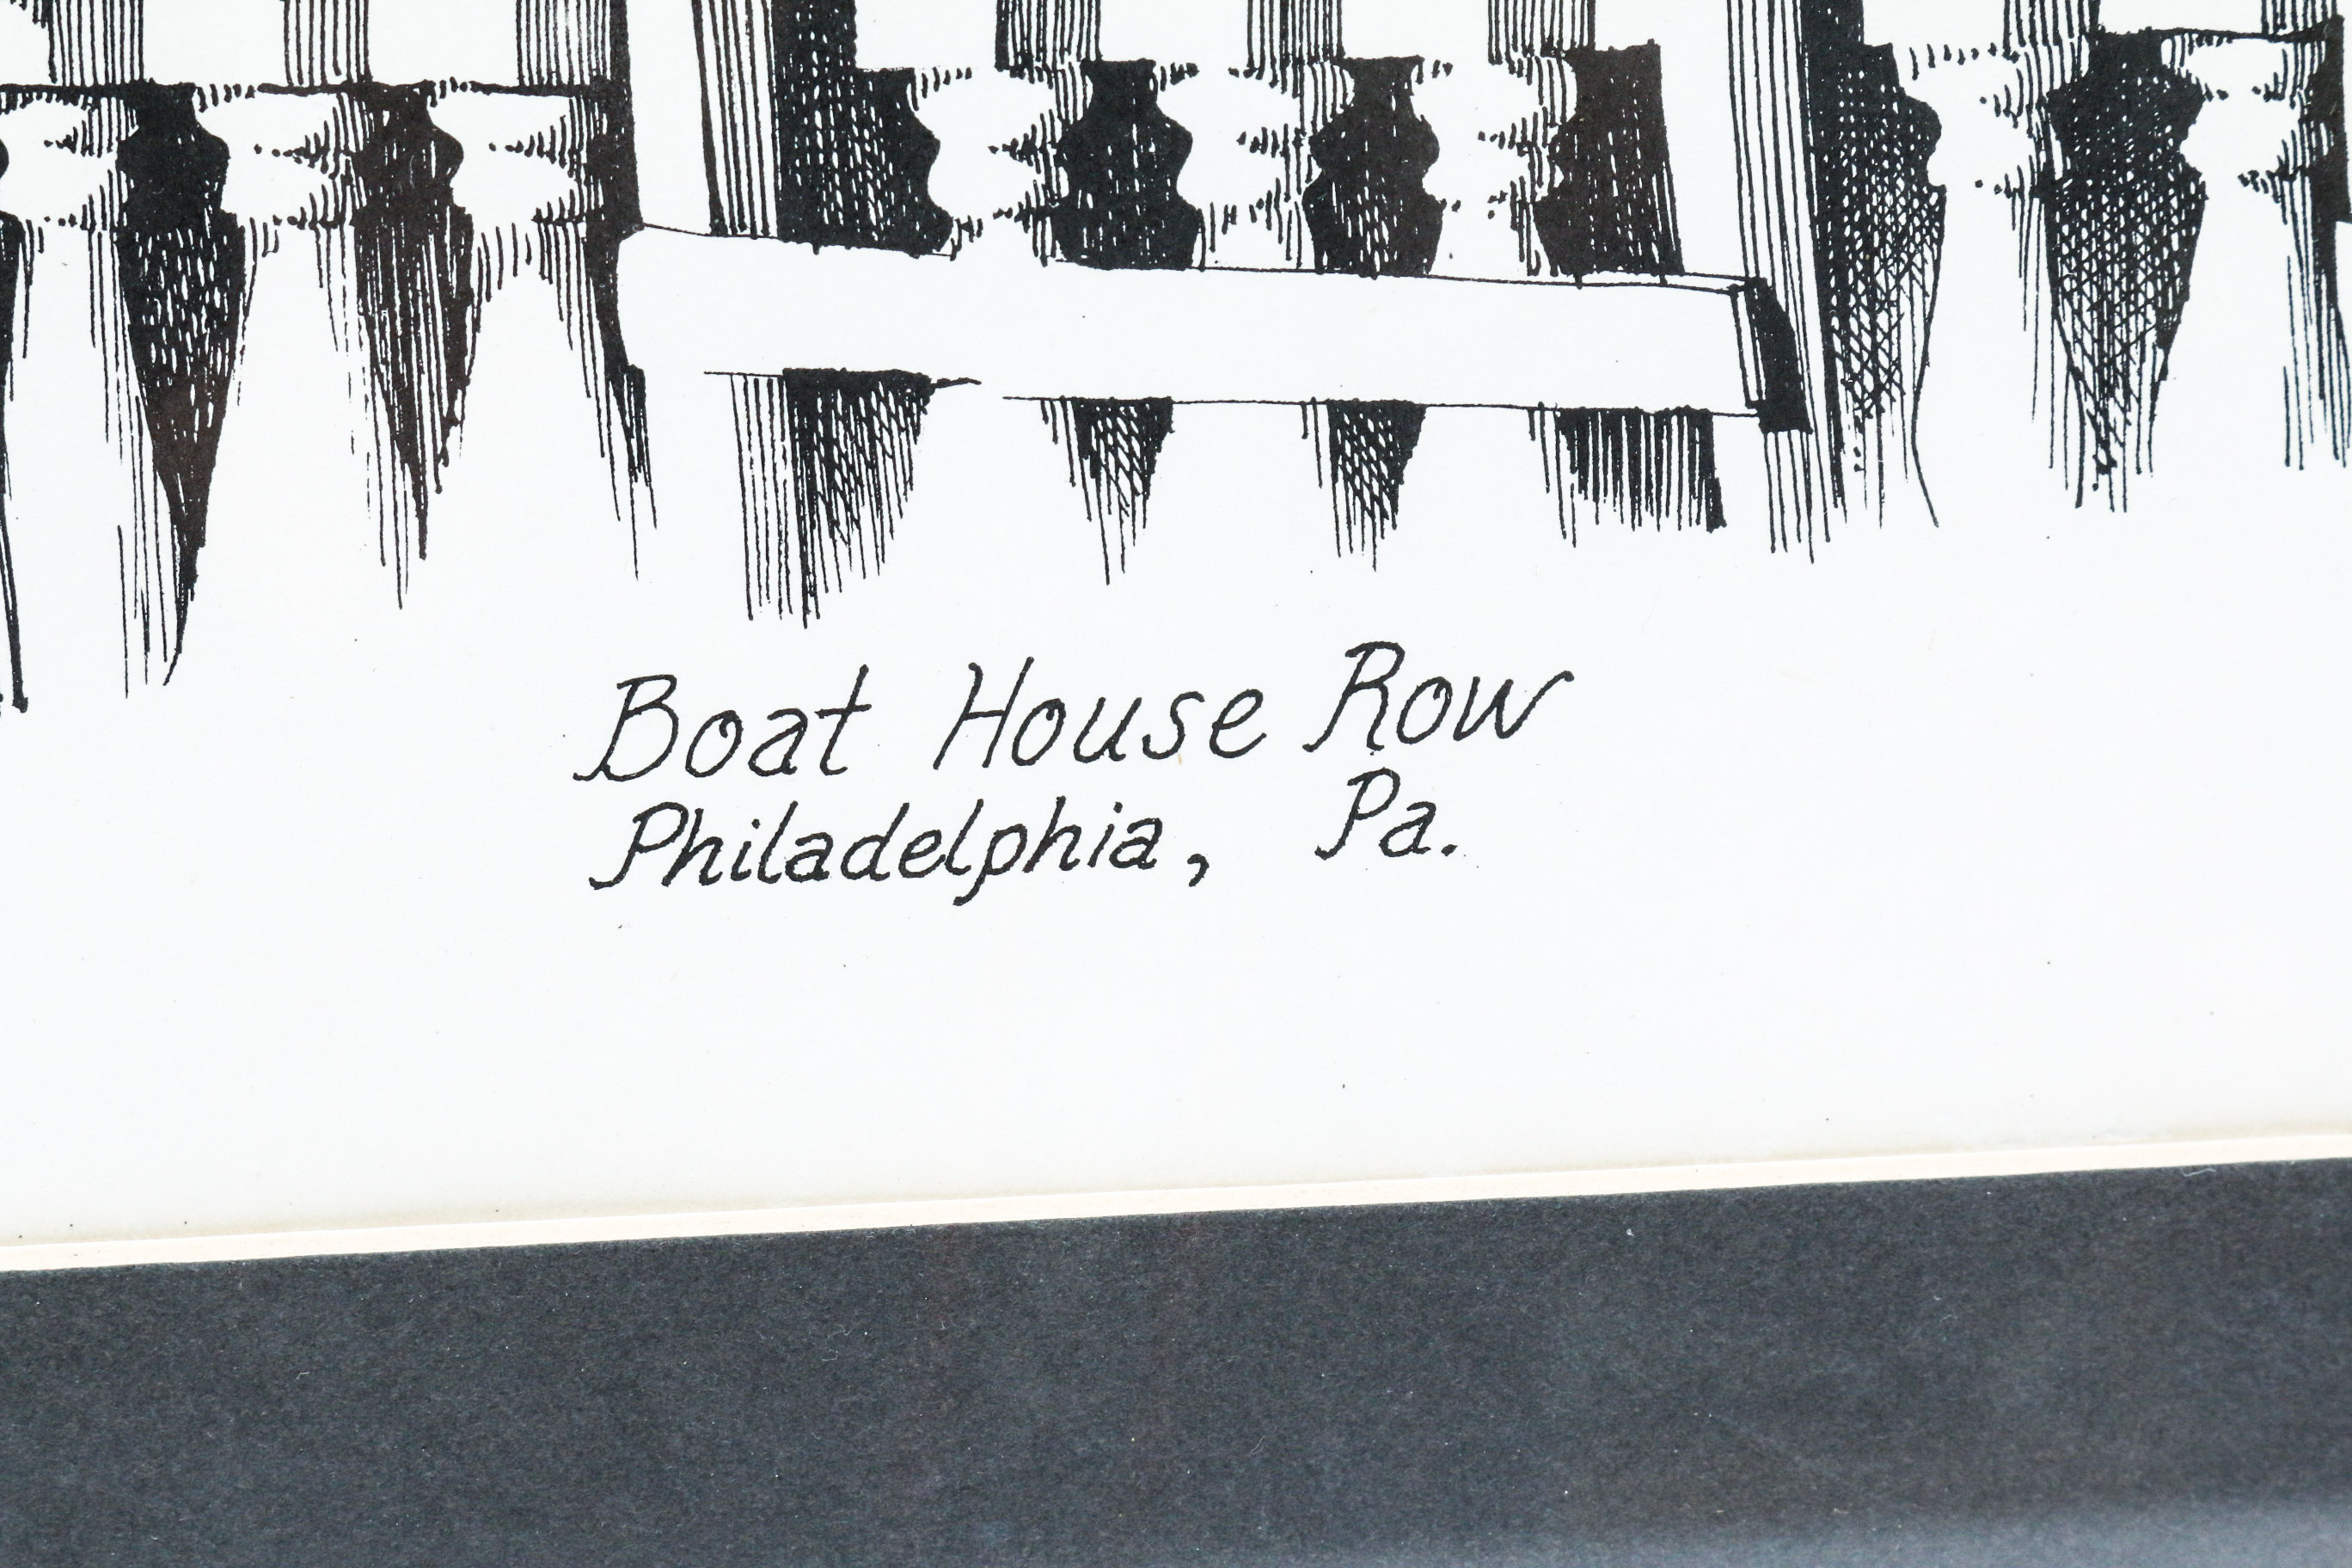 Boat House Row
Philadelphia, Pa.